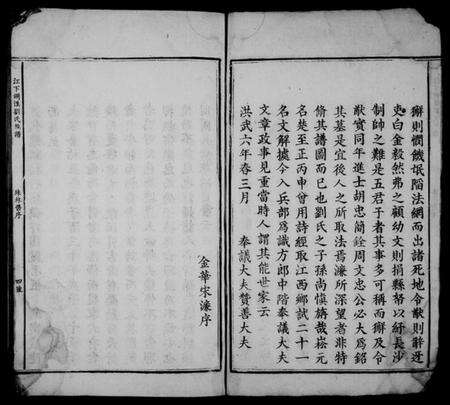 獬則憫饑氓陷法網而出諸死地令猷則辭迓
吏白金毅然弗之顧幼文則捐縣帑以紓長沙
制帥之難是五君子者其事多可稱而獬及令
猷實同年進士胡忠簡銓周文忠公必大為銘
其墓是宜後人之所取法焉濂所深望者非特
脩其譜圖而已也劉氏之子孫尚慎旃哉崧元
名楚至正丙申曾用詩經取江西鄉試二十一
名文解據今入兵部為識方郎中階奉議大夫
文章政事見重當時人謂其能世家云
洪武六年春三月 奉議大夫贊善大夫
金華宋濂序
珠林舊序
四